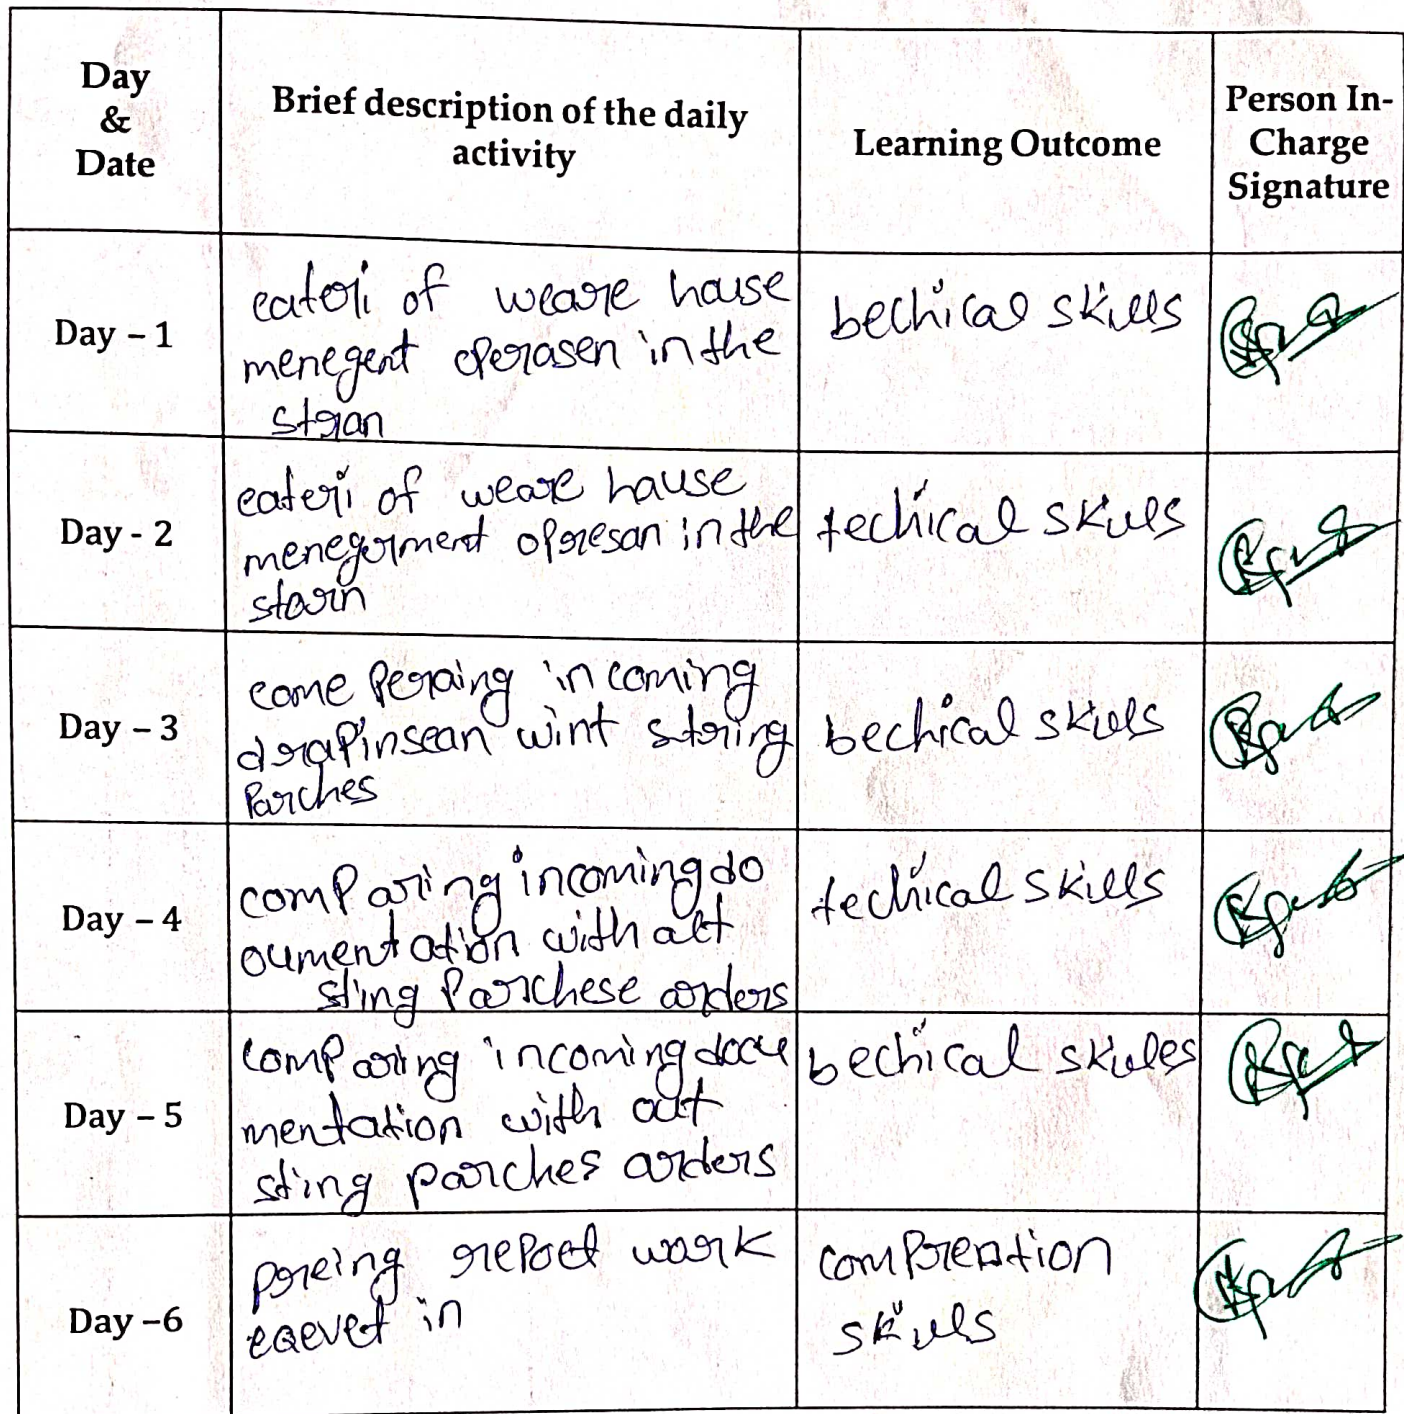 Day
&
Date
Brief description of the daily
activity
Learning Outcome
Person In-
Charge
Signature
Day – 1
eateri of weare hause
menegent operasen in the
stran
bechical skills
Day - 2
eateri of weare hause
menegerment opresan in the
starn
techical skills
Day – 3
come peraing in coming
drapinsean wint string
Parches
bechical skills
Day – 4
comparing incoming do
oument ation with alt
sting Parchese arders
techical skills
Day – 5
comparing incoming docu
mentation with out
sting parches arders
bechical skules
Day –6
preing repoet work
eqevet in
comprention
skills